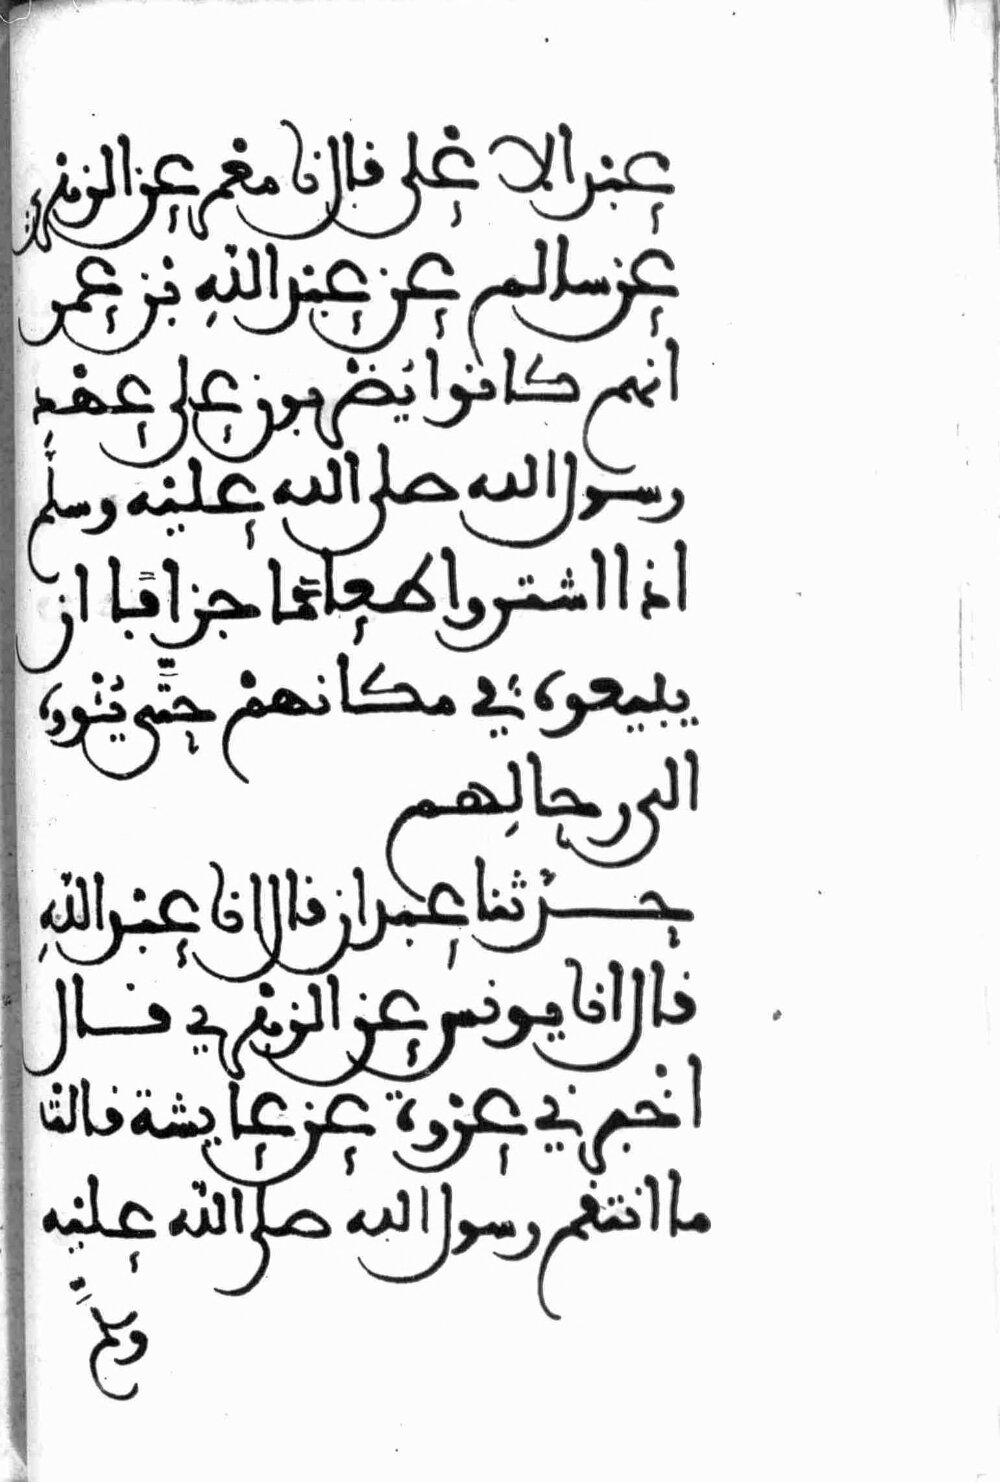 عبد الاعلى قال نا معمر عن الزهري
عن سالم عن عبد اللهِ بن عمر
انهم كانوا يُضْربون على عهْدِ
رسول الله صلى الله عليه وسلّم
اذا اشتروا طعامًا جزافًا ان
يبيعوه في مكانهمْ حتّى يُئْووه
الى رحالِهم
حدّثنا عبدان قال انا عبْد اللهِ
قال انا يونس عن الزهْري قال
اخْبرني عرْوة عن عايشة قالت
ما انتقم رسول الله صلى اللّه عليْه
ولم